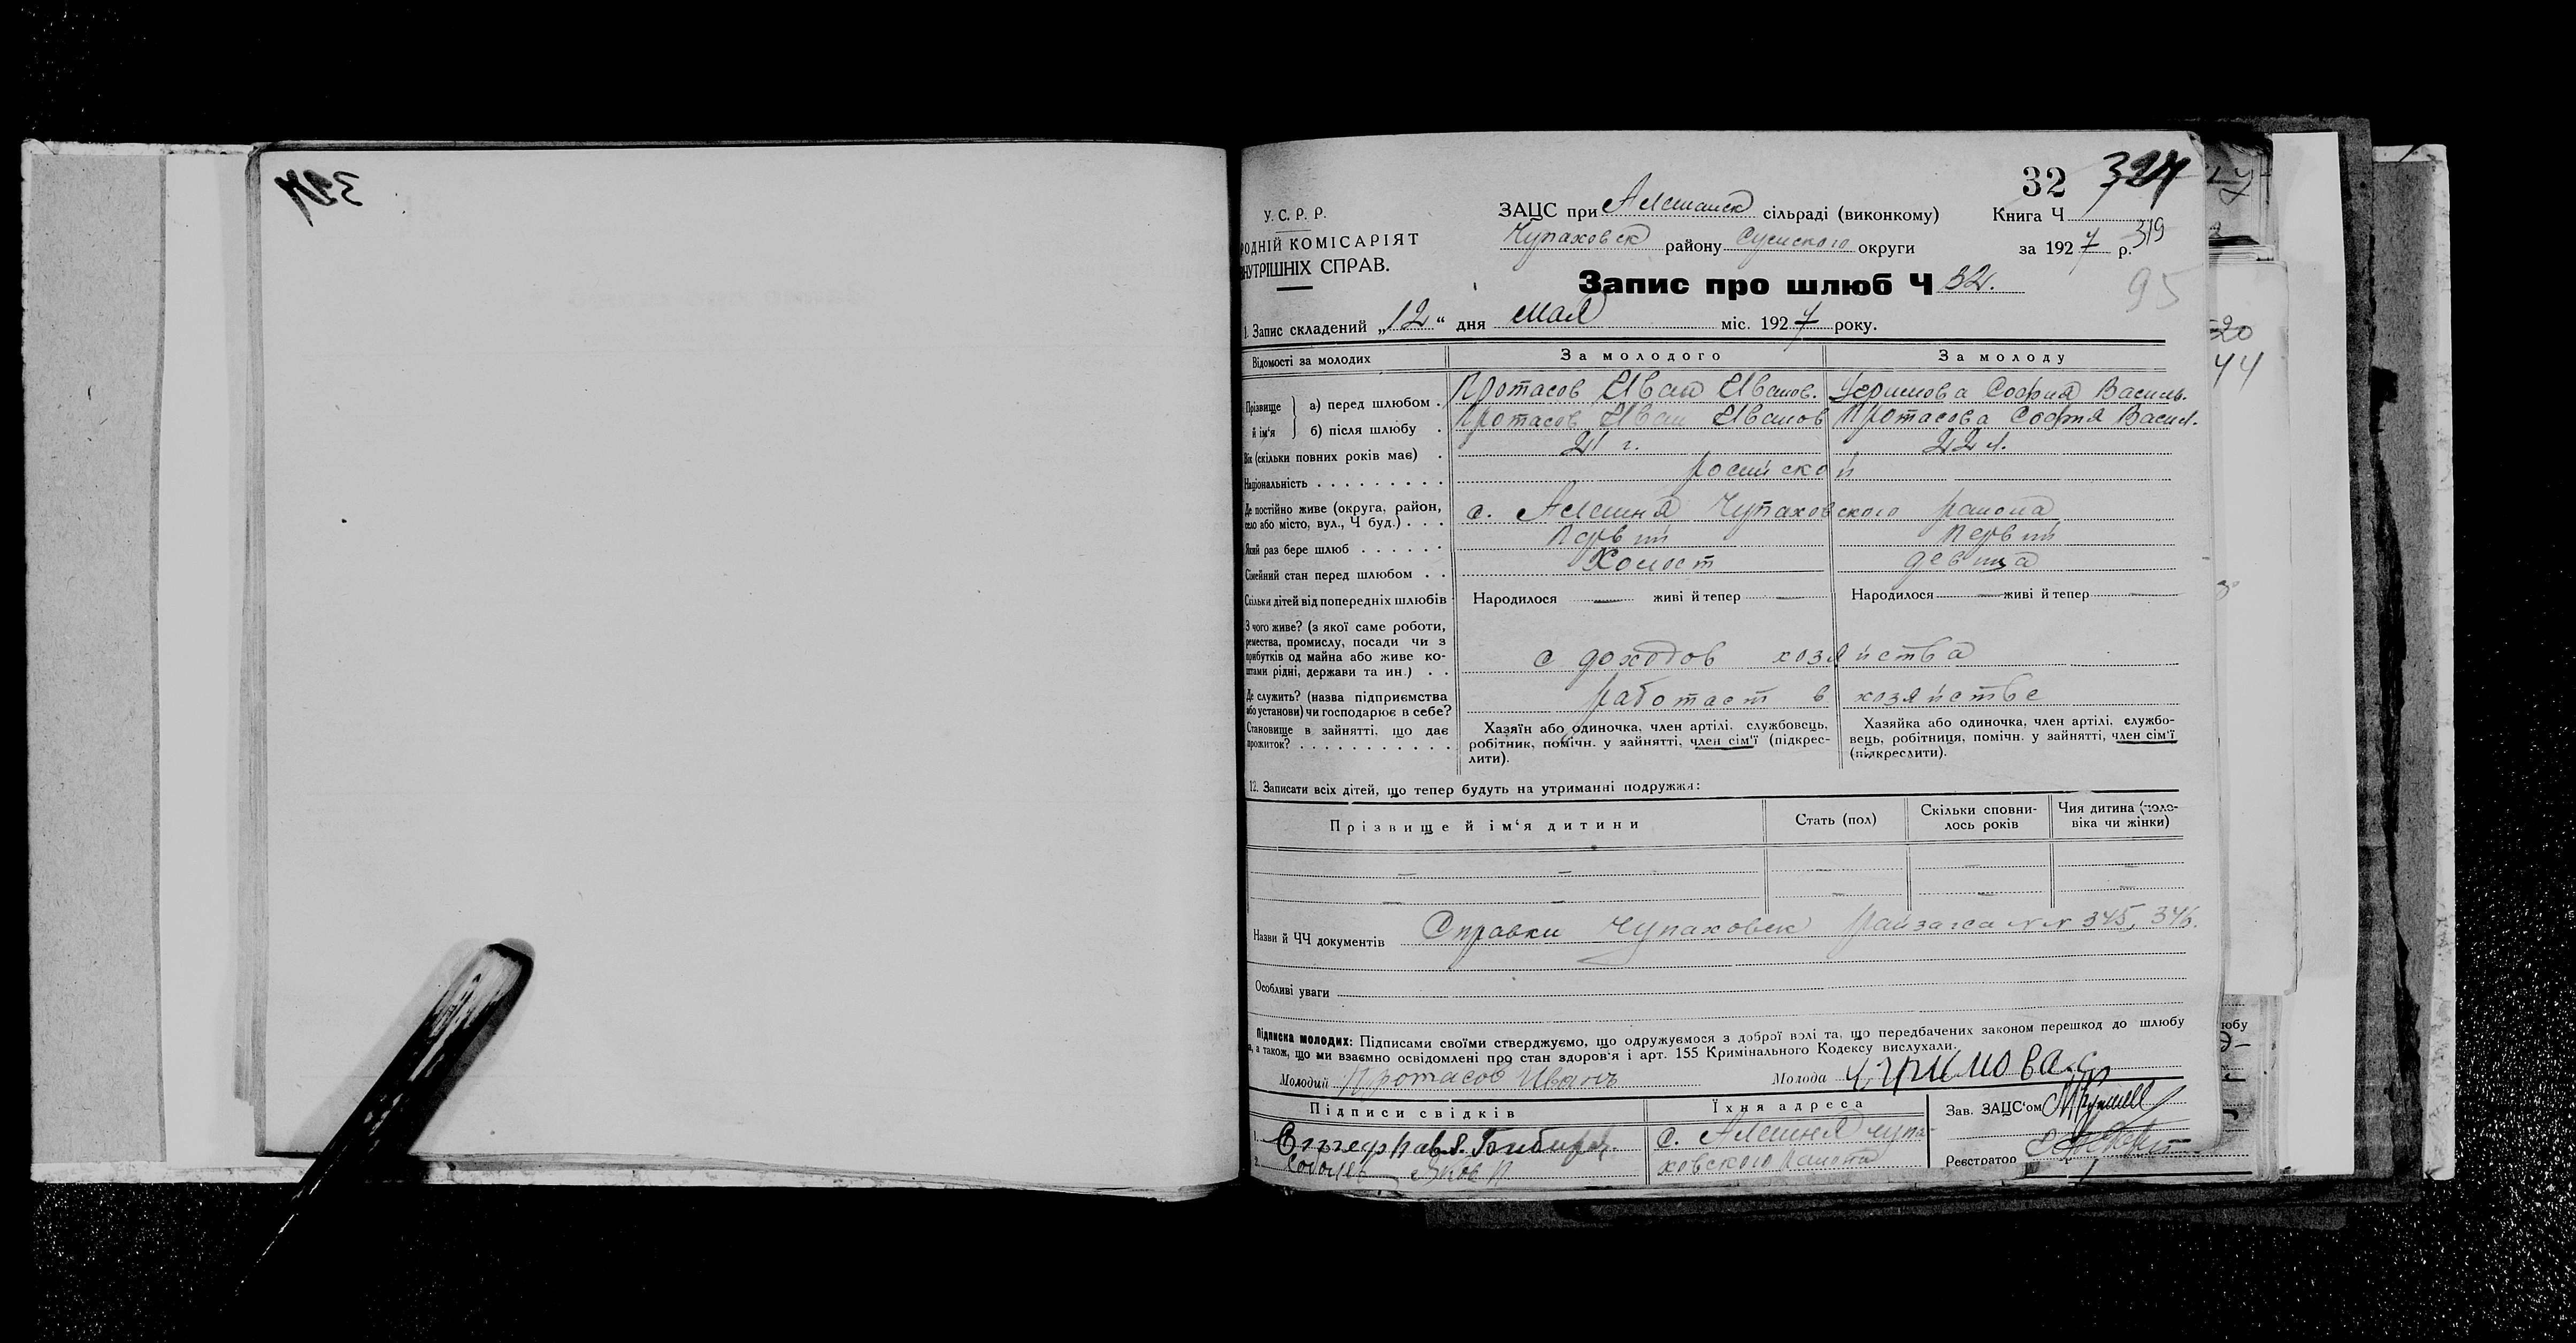 32
У. С. Р. Р.
ЗАЦС при Алешанск сільраді (виконкому) Книга Ч
РОДНІЙ КОМІСАРІЯТ
Чупаховск району Сумского округи за 1927 р. 319
НУТРІШНІХ СПРАВ.
Запис про шлюб Ч 32.
95
1. Запис складений „12“ дня мая міс. 1927 року.
Відомості за молодих За молодого За молоду
Прізвище й ім‘я а) перед шлюбом . Протасов Иван Иванов. София Василь.
б) після шлюбу . Протасов Иван Иванов Протасова Софія Васил.
Вік (скільки повних років має) . 21 г. 22 л.
Національність . . . . . . . . . росийской
Де постійно живе (округа, район, село або місто, вул., Ч буд.) . . . с. Алешня Чупаховского района
Який раз бере шлюб . . . . . . Первий Первий
Сімейний стан перед шлюбом . . Холост девица
Скільки дітей від попередніх шлюбів Народилося — живі й тепер — Народилося — живі й тепер —
З чого живе? (з якої саме роботи,
ремества, промислу, посади чи з
прибутків од майна або живе ко-
штами рідні, держави та ин.) . . с доходов хозяйства
Де служить? (назва підприємства
або установи) чи господарює в себе? работает в хозяйстве
Становище в зайнятті, що дає
прожиток? . . . . . . . . . . .
Хазяїн або одиночка, член артілі, службовець,
робітник, помічн. у зайнятті, член сім‘ї (підкрес-
лити).
Хазяйка або одиночка, член артілі, службо-
вець, робітниця, помічн. у зайнятті, член сім‘ї
(підкреслити).
12. Записати всіх дітей, що тепер будуть на утриманні подружжя:
Прізвище й ім‘я дитини Стать (пол) Скільки сповни-
лось років Чия дитина (чоло-
віка чи жінки)
Назви й ЧЧ документів Справки Чупаховск райзагса NN 345, 346.
Особливі уваги
Підписка молодих: Підписами своїми стверджуємо, що одружуємося з доброї волі та, що передбачених законом перешкод до шлюбу
а також, що ми взаємно освідомлені про стан здоров‘я і арт. 155 Кримінального Кодексу вислухали.
Молодий Протасов Иванъ Молода
Підписи свідків Їхня адреса Зав. ЗАЦС‘ом
1. с. Алешня чупа-
2. ховского района Реєстратор